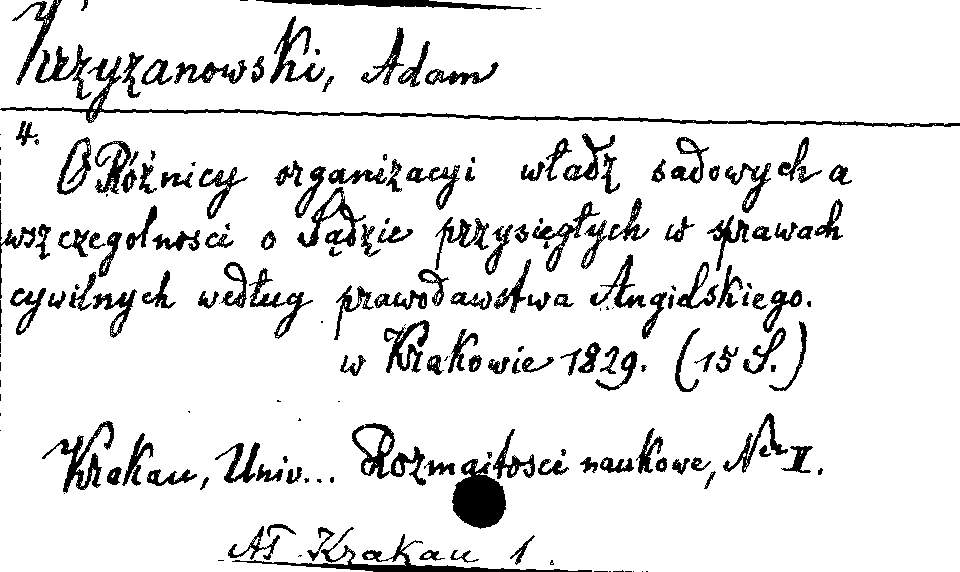 Krzyzanowski, Adam
4.
O Różnicy organizacyi władz sadowych a
wszczegolnosci o Sądzie przysięgłych w sprawach
cywilnych według prawodawstwa Angielskiego.
w Krakowie 1829. (15 S.)
Krakau, Univ... Rozmaitosci naukowe, Ner II.
AT Krakau 1.